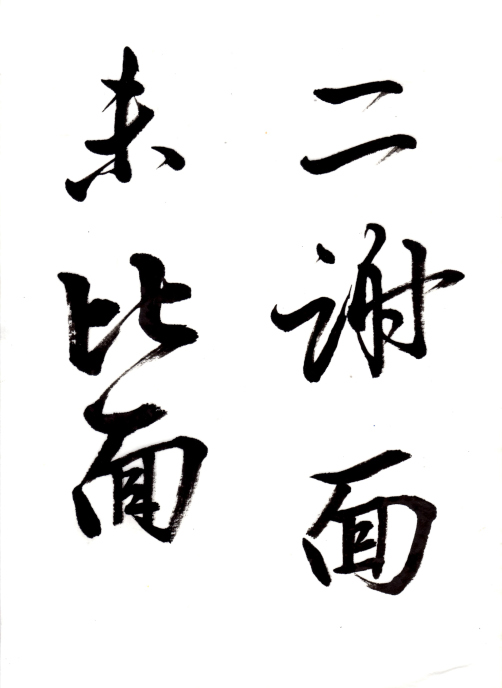 二謝面
未比面